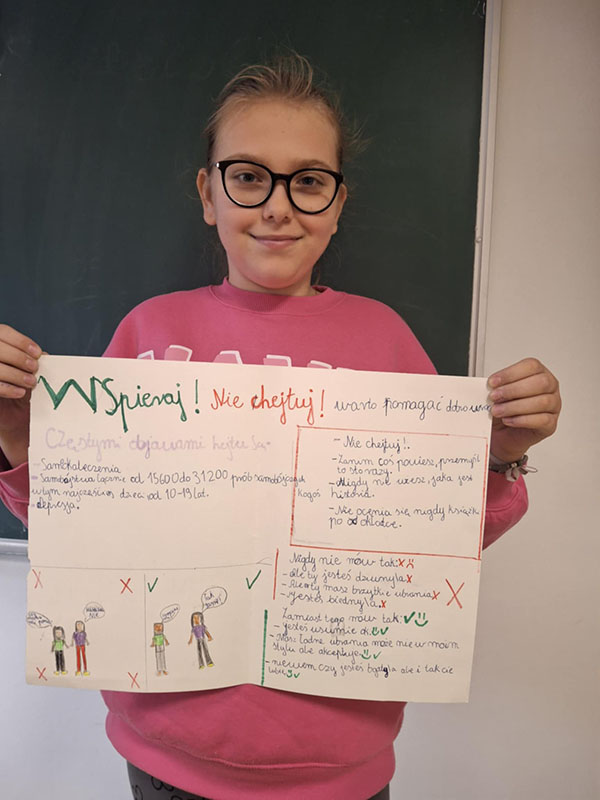 Wspieraj! Nie chejtuj! warto pomagać
Częstymi objawami hejtu są-
- Samokaleczenia
- Samobójstwa łącznie od 15600 do 31200 prób samobójczych
w tym najczęściej dzieci od 10-19 lat.
- depresja.
- Nie chejtuj!.
- Zanim coś powiesz, przemyśl
to sto razy.
- Nigdy nie wiesz, jaka jest
kogoś historia.
- Nie ocenia się nigdy książki
po okładce.
Nigdy nie mów tak:
- Ale ty jesteś dziwny/a
- Ale ty masz brzytkie ubrania
- Jesteś biedny/a.
Zamiast tego mów tak:
- jesteś usumie ok
- Masz ładne ubrania może nie w moim
stylu ale akceptuje
- niewiem czy jesteś bgdy/a ale i tak cie
lubie